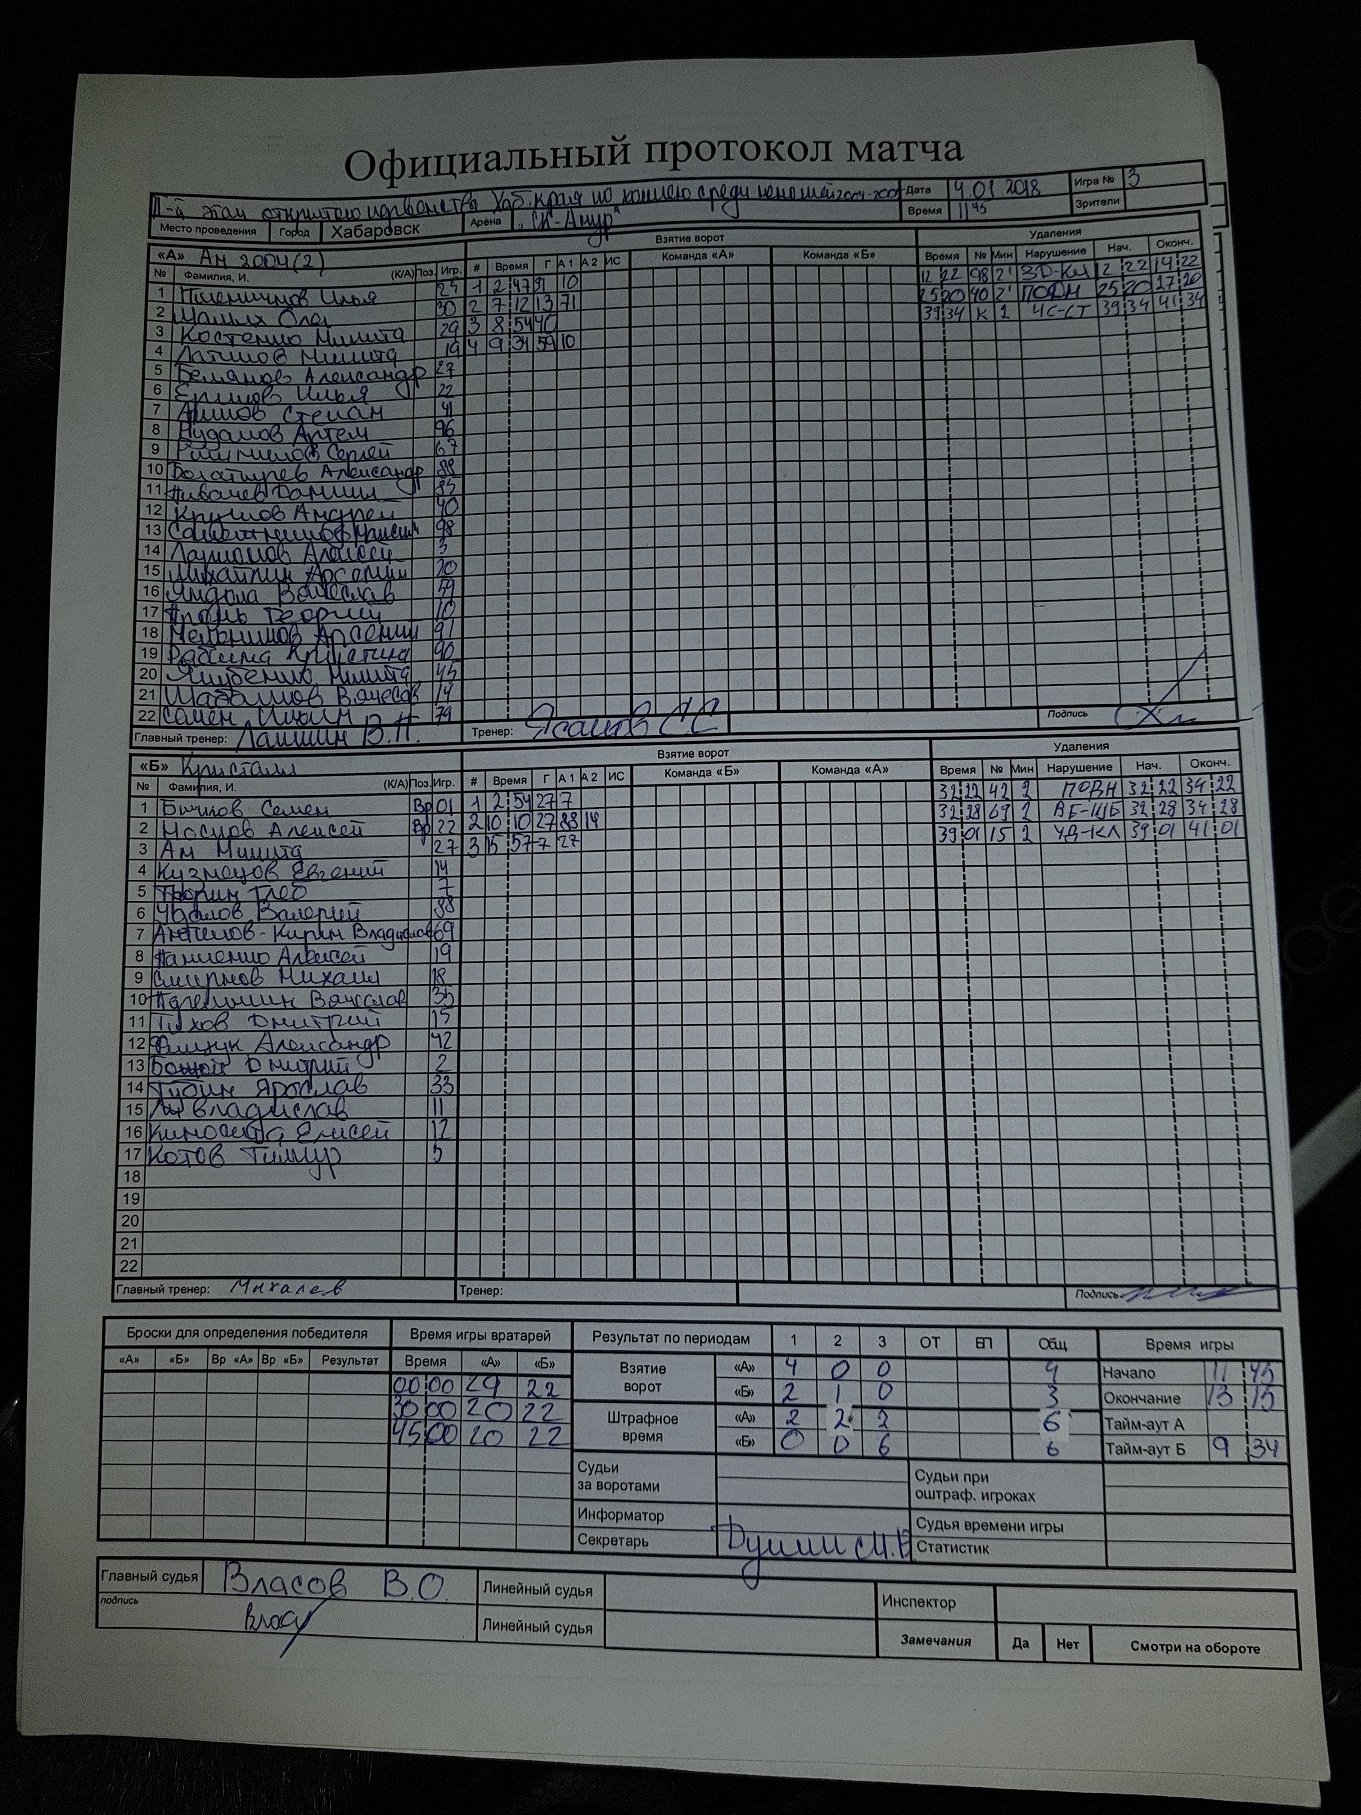 Официальный протокол матча
II-й этап открытого первенства Хаб. края по хоккею среди юношей 2004-2005 Дата 4.01 2018 Игра № 3
Время 11 45 Зрители
Место проведения Город Хабаровск Арена "СК-Амур"
«А» Ам 2004(2) Взятие ворот Удаления
№ Фамилия, И. (К/А) Поз. Игр. # Время Г А1 А2 ИС Команда «А» Команда «Б» Время № Мин Нарушение Нач. Оконч.
1 Пшеничнов Илья 24 1 2 47 91 10 12 22 98 2' ЗД-КЛ 12 22 14 22
2 Олег 30 2 7 12 13 71 25 20 40 2' ПОДН 25 20 27 20
3 Костенко Никита 29 3 8 54 40 39 34 К 2 ЧС-СТ 39 34 41 34
4 Латынов Никита 19 4 9 34 59 10
5 Александр 27
6 Ершов Илья 22
7 Степан 41
8 Артем 96
9 Сергей 67
10 Богатырев Александр 88
11 Пивачев Даниил 85
12 Крылов Андрей 40
13 Максим 98
14 Ларионов Алексей 3
15 Михайлин Арсений 20
16 Вячеслав 59
17 Георгий 10
18 Мельников Арсений 91
19 Кристина 90
20 Якубенко Никита 45
21 Шабалков Вячеслав 14
22 Семен 79
Главный тренер: Лапшин В.Н. Тренер: С.С Подпись
«Б» Кристалл Взятие ворот Удаления
№ Фамилия, И. (К/А) Поз. Игр. # Время Г А1 А2 ИС Команда «Б» Команда «А» Время № Мин Нарушение Нач. Оконч.
1 Бычков Семен Вр 01 1 2 54 27 7 32 22 42 2 ПОДН 32 22 34 22
2 Носков Алексей Вр 22 2 10 10 27 88 14 32 28 69 2 ВБ-ШБ 32 28 34 28
3 Ам Никита 27 3 15 57 7 27 39 01 15 2 УД-КЛ 39 01 41 01
4 Кузнецов Евгений 14
5 Тюрин Глеб 7
6 Чкалов Валерий 88
7 Антипов-Кирин Владислав 69
8 Панченко Алексей 19
9 Смирнов Михаил 18
10 Вячеслав 35
11 Тихов Дмитрий 15
12 Фищук Александр 42
13 Дмитрий 2
14 Губин Ярослав 33
15 Владислав 11
16 Киносита Елисей 12
17 Котов Тимур 5
18
19
20
21
22
Главный тренер: Михалев Тренер: Подпись
Броски для определения победителя Время игры вратарей Результат по периодам 1 2 3 ОТ БП Общ Время игры
«А» «Б» Вр «А» Вр «Б» Результат Время «А» «Б» Взятие ворот «А» 4 0 0 4 Начало 11 45
00 00 29 22 «Б» 2 1 0 3 Окончание 13 15
30 00 20 22 Штрафное время «А» 2 2 2 6 Тайм-аут А
45 00 20 22 «Б» 0 0 6 6 Тайм-аут Б 9 34
Судьи за воротами Судьи при оштраф. игроках
Информатор Судья времени игры
Секретарь Статистик
Главный судья Власов В.О. Линейный судья Инспектор
подпись Линейный судья Замечания Да Нет Смотри на обороте